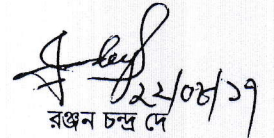 ২২/০৮/১৭
রঞ্জন চন্দ্র দে